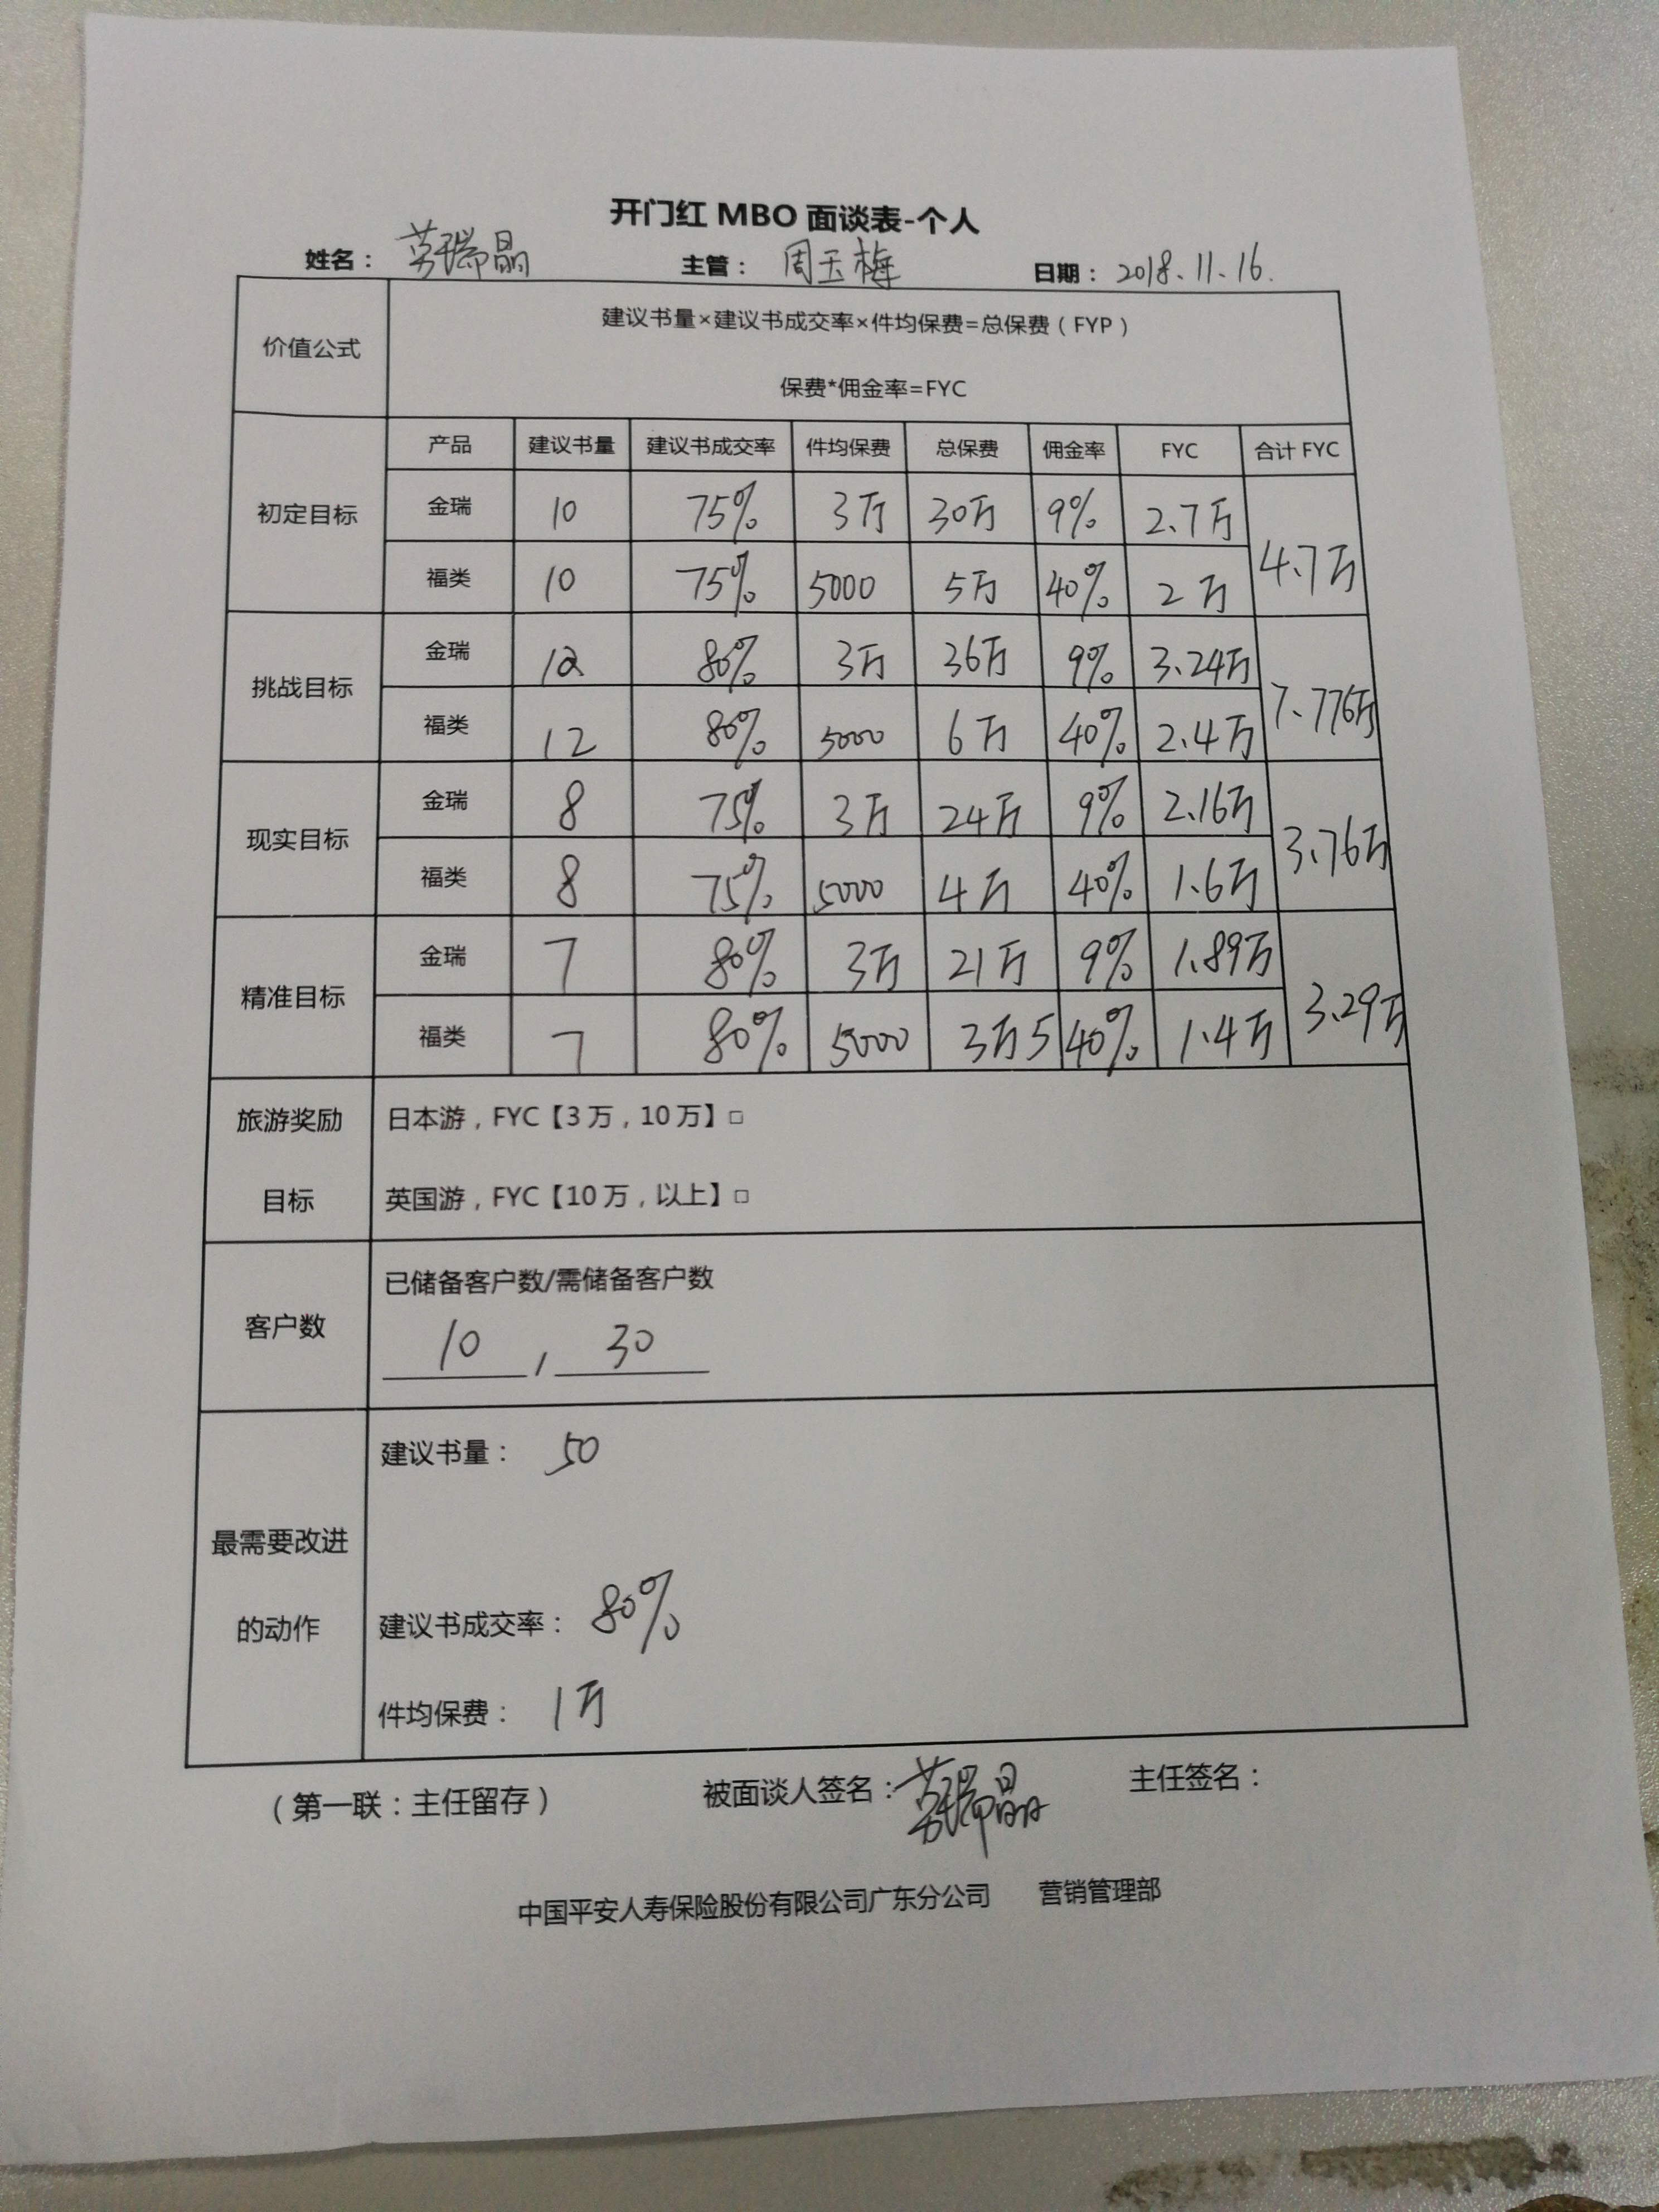 开门红 MBO 面谈表-个人
姓名：劳瑞晶 主管：周玉梅 日期：2018.11.16.
价值公式
建议书量×建议书成交率×件均保费=总保费（FYP）
保费*佣金率=FYC
产品 建议书量 建议书成交率 件均保费 总保费 佣金率 FYC 合计 FYC
初定目标
金瑞 10 75% 3万 30万 9% 2.7万
福类 10 75% 5000 5万 40% 2万
4.7万
挑战目标
金瑞 12 80% 3万 36万 9% 3.24万
福类 12 80% 5000 6万 40% 2.4万
7.776万
现实目标
金瑞 8 75% 3万 24万 9% 2.16万
福类 8 75% 5000 4万 40% 1.6万
3.76万
精准目标
金瑞 7 80% 3万 21万 9% 1.89万
福类 7 80% 5000 3万5 40% 1.4万
3.29万
旅游奖励
目标
日本游，FYC【3 万，10 万】□
英国游，FYC【10 万，以上】□
客户数
已储备客户数/需储备客户数
10 / 30
最需要改进
的动作
建议书量：50
建议书成交率：80%
件均保费：1万
（第一联：主任留存） 被面谈人签名：劳瑞晶 主任签名：
中国平安人寿保险股份有限公司广东分公司 营销管理部